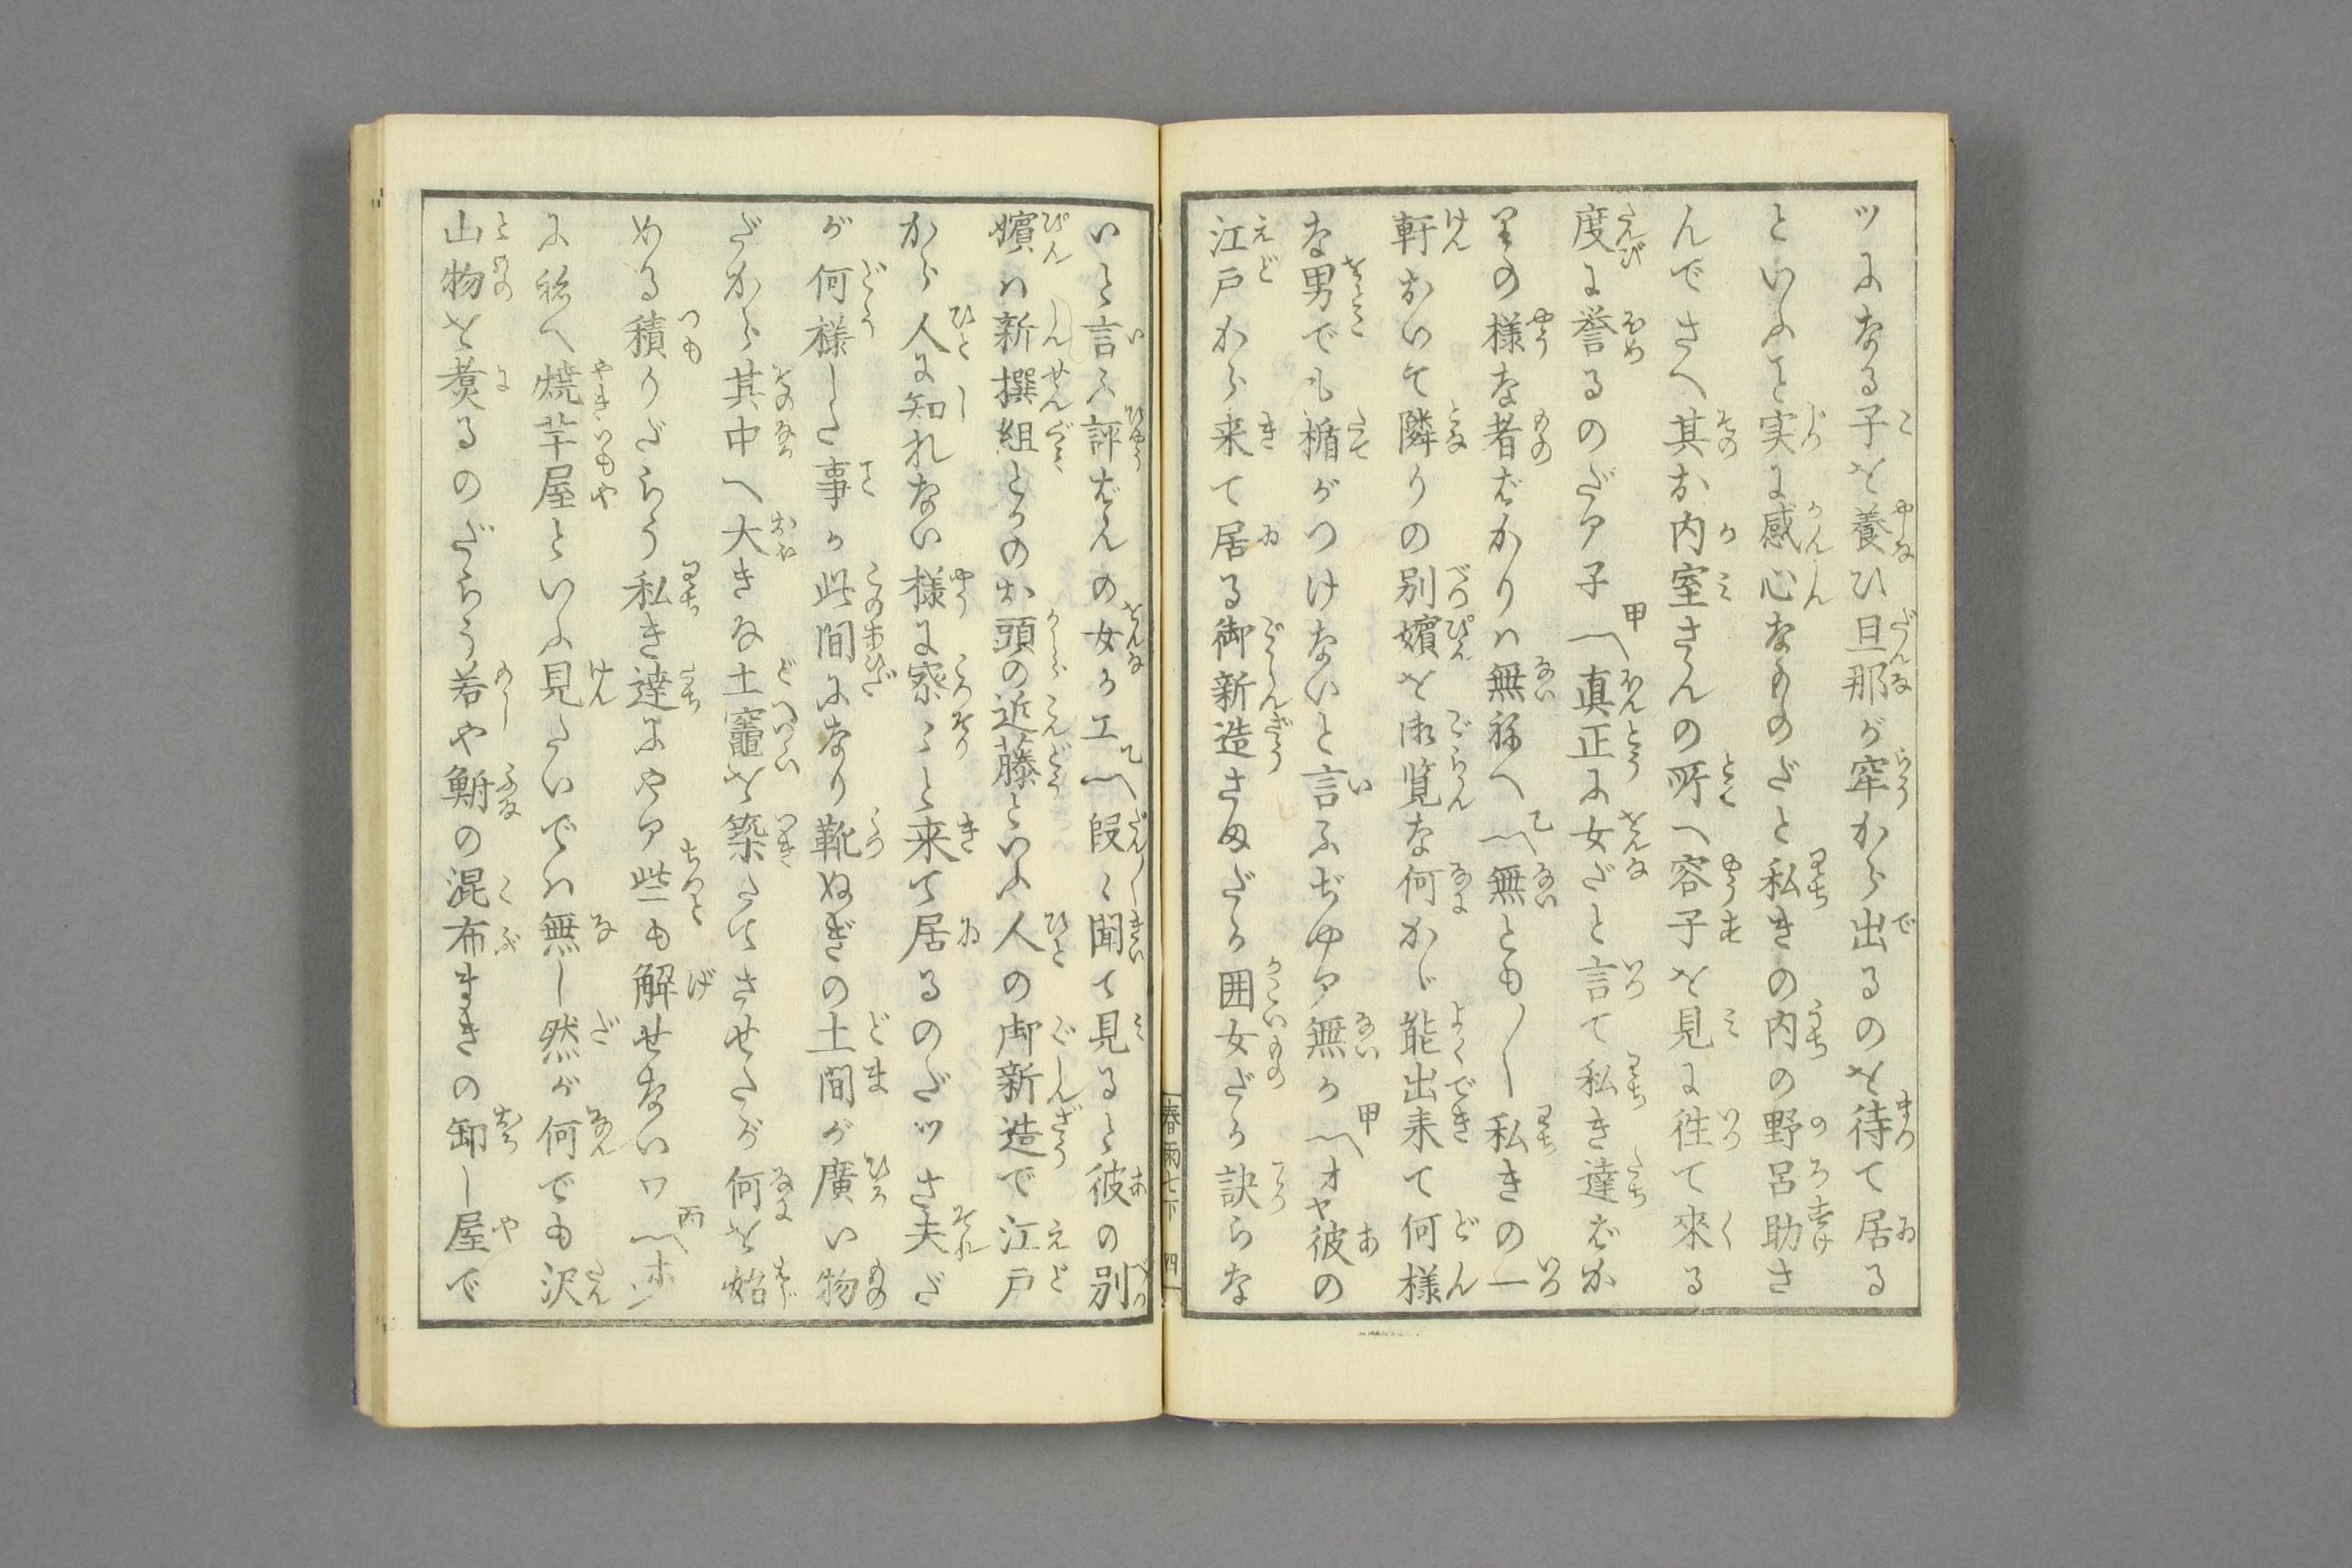 ツになる子を養ひ旦那が牢から出るのを待て居る
といふと実に感心なものだと私きの内の野呂助さ
んでさへ其お内室さんの所へ容子を見に往て來る
度に誉るのだア子 甲〽真正に女だと言て私き達ばか
りの様な者ばかりハ無ねへ 乙〽無とも〳〵私きの一
軒おいて隣りの別嬪を御覧な何から能出来て何様
な男でも楯がつけないと言ふぢゆア無か 甲〽オヤ彼の
江戸から来て居る御新造さまだか囲女だか訣らな
いと言ふ評ばんの女か工 乙〽段々聞て見ると彼の別
嬪ハ新撰組とかのお頭の近藤といふ人の御新造で江戸
から人に知れない様に窃々と来て居るのだツさ夫だ
が何様した事か此間になり靴ぬぎの土間が廣い物
だから其中へ大きな土竈を築たけさせたが何を始
める積りだらう私き達にやア些も解せないワ 丙〽ホンﾆ
に祢へ焼芋屋といふ見たいでハ無し然が何でも沢
山物を煮るのだらう若や鮒の混布まきの卸し屋で
春雨七下 四